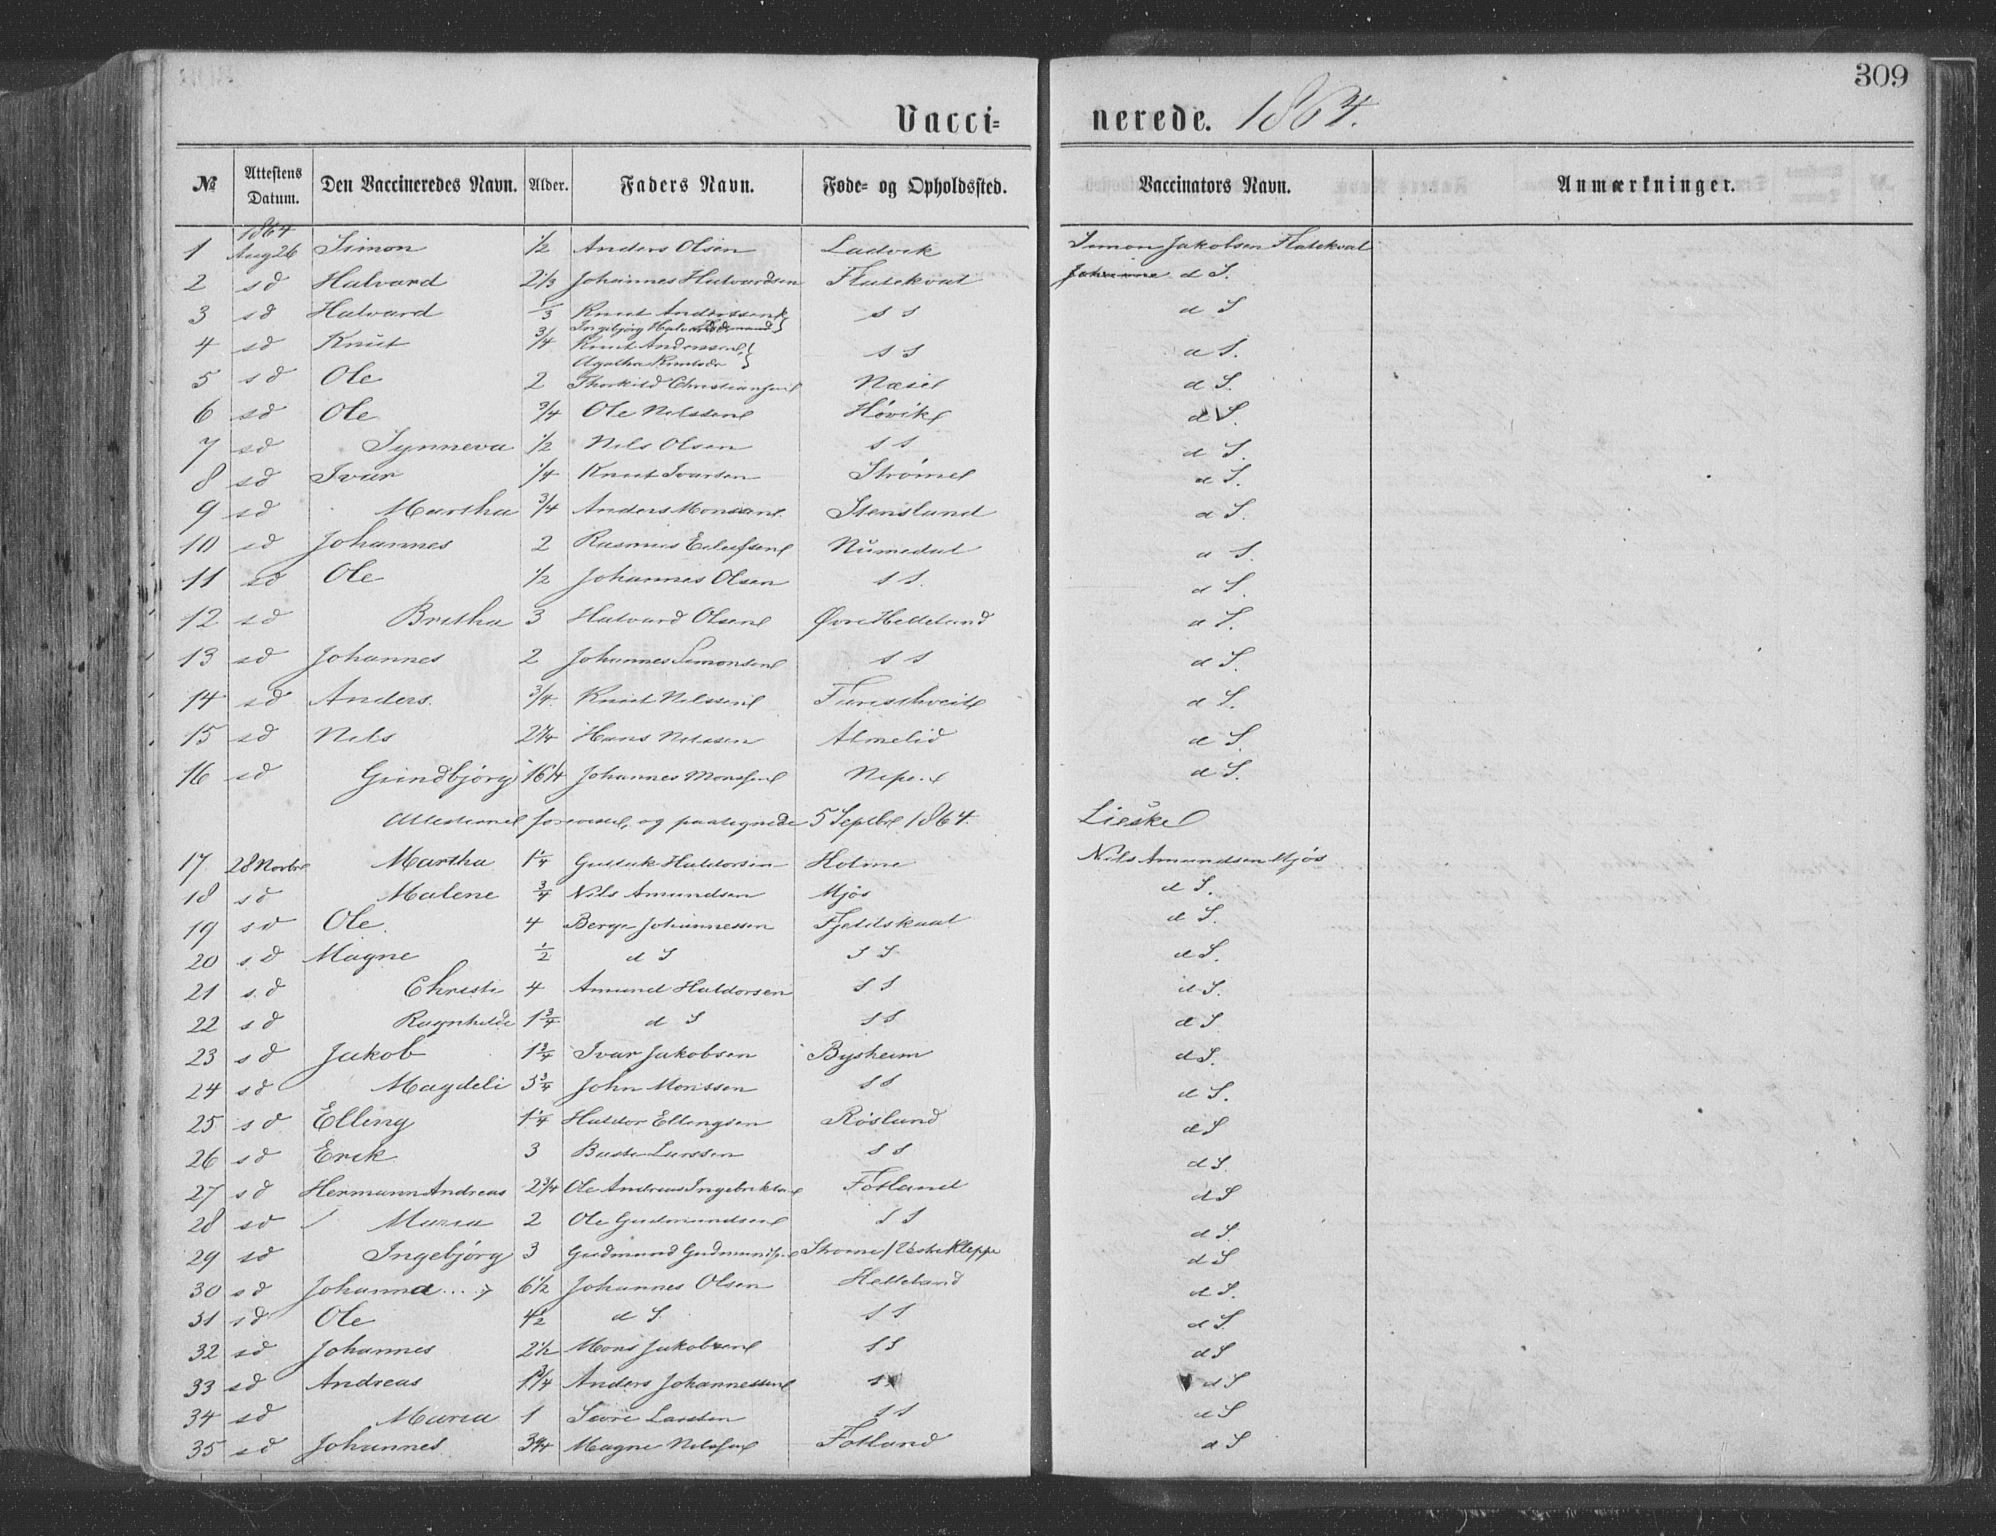 309
Vacci= nerede. 1864.
№ Attestens Datum. Den Vaccineredes Navn. Alder. Faders Navn. Føde= og Opholdssted. Vaccinators Navn. Anmærkninger.
1864
1 Aug 26 Simon 1/2 Anders Olsen Ladvik Simon Jakobsen Flatekval
2 sd Halvard 2 1/3 Johannes Halvardsen Flatekval Johannes d S.
3 sd Halvard 1/3 Knut Anderssen s s d S
Ingebjørg Halvarsd
4 sd Knut 3/4 Knut Anderssen s s d S.
Agatha Knutsdr
5 sd Ole 2 Thorkild Christiansen Næse d S.
6 sd Ole 3/4 Ole Nelssen Høvik d S.
7 sd Synneva 1/2 Nels Olsen s s d S.
8 sd Ivar 1/4 Knut Ivarsen Strøme d S.
9 sd Martha 3/4 Anders Monsen Stensland d S.
10 sd Johannes 2 Rasmus Eilufsen Numedal d S.
11 sd Ole 1/2 Johannes Olsen s s. d S.
12 sd Britha 3 Halvard Olsen Øvre Helleland d S.
13 sd Johannes 2 Johannes Simonsen s s d S.
14 sd Anders. 3/4 Knut Nelssen d S.
15 sd Nels 2 1/4 Hans Nelssen Almelid d S.
16 sd Gundbjørg 16 1/4 Johannes Monssen d S.
Attesterne foreviste, og paategnede 5 Septbr 1864. Lieske
17 28 Novbr Martha 1 1/4 Haldorsen Holme Nils Amundsen Mjøs
18 sd Malene 3/4 Nils Amundsen Mjøs d S.
19 sd Ole 4 Berge Johannessen Fjeldskaal d S.
20 sd Magne 1/2 d S s s d S.
21 sd Christi 4 Amund Haldorsen s s d S.
22 sd Ragnhilde 1 3/4 d S s s d S.
23 sd Jakob 1 3/4 Ivar Jakobsen Bysheim d S.
24 sd Magdeli 5 3/4 John Monssen s s d S.
25 sd Elling 1 1/4 Haldor Ellingsen Røsland d S
26 sd Erik 3 Larssen s s d S.
27 sd Hermann Andreas 2 3/4 Ole Andreas Ingebriktsn Fotland d S
28 sd Maria 2 Ole Gudmundsen s s d S.
29 sd Ingebjørg 3 Gudmund Gudmundsen Strøme / Vestre Kleppe d S
30 sd Johanna 6 1/2 Johannes Olsen Helleland d S.
31 sd Ole 4 1/2 d S. s s d S.
32 sd Johannes 2 1/2 Mons Jakobsen s s d S
33 sd Andreas 1 3/4 Anders Johannessen s d S
34 sd Maria 1 Larssen s s d S
35 sd Johannes 3 3/4 Magne Nelssen Fotland d S